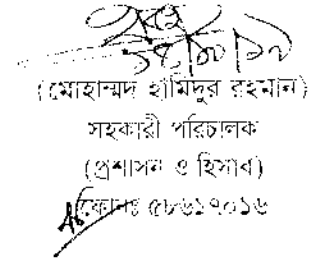 (মোহাম্মদ হামিদুর রহমান)
সহকারী পরিচালক
(প্রশাসন ও হিসাব)
ফোনঃ ৫৮৬১৭০১৬